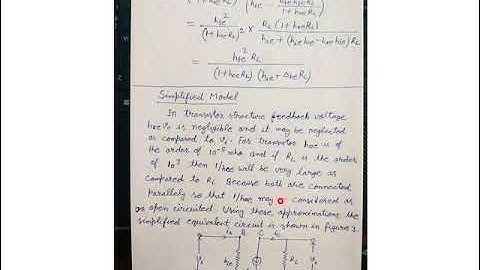 (1+hoe RL) (hie - hfe hre RL / 1+hoe RL)
= hfe² / (1+hoe RL)² × RL (1+hoe RL) / hie + (hie hoe - hfe hre) RL
= hfe² RL / (1+hoe RL) (hie + Δhe RL)
Simplified Model
In transistor structure feedback voltage
hre vo is negligible and it may be neglected
as compared to vs. For transistor hoe is of
the order of 10⁻⁵ mho and if RL is the order
of 10³ then 1/hoe will be very large as
compared to RL. Because both are connected
parallely so that 1/hoe may considered as
open circuited. Using these approximations the
simplified equivalent circuit is shown in figure 3.
B C
hie
RL